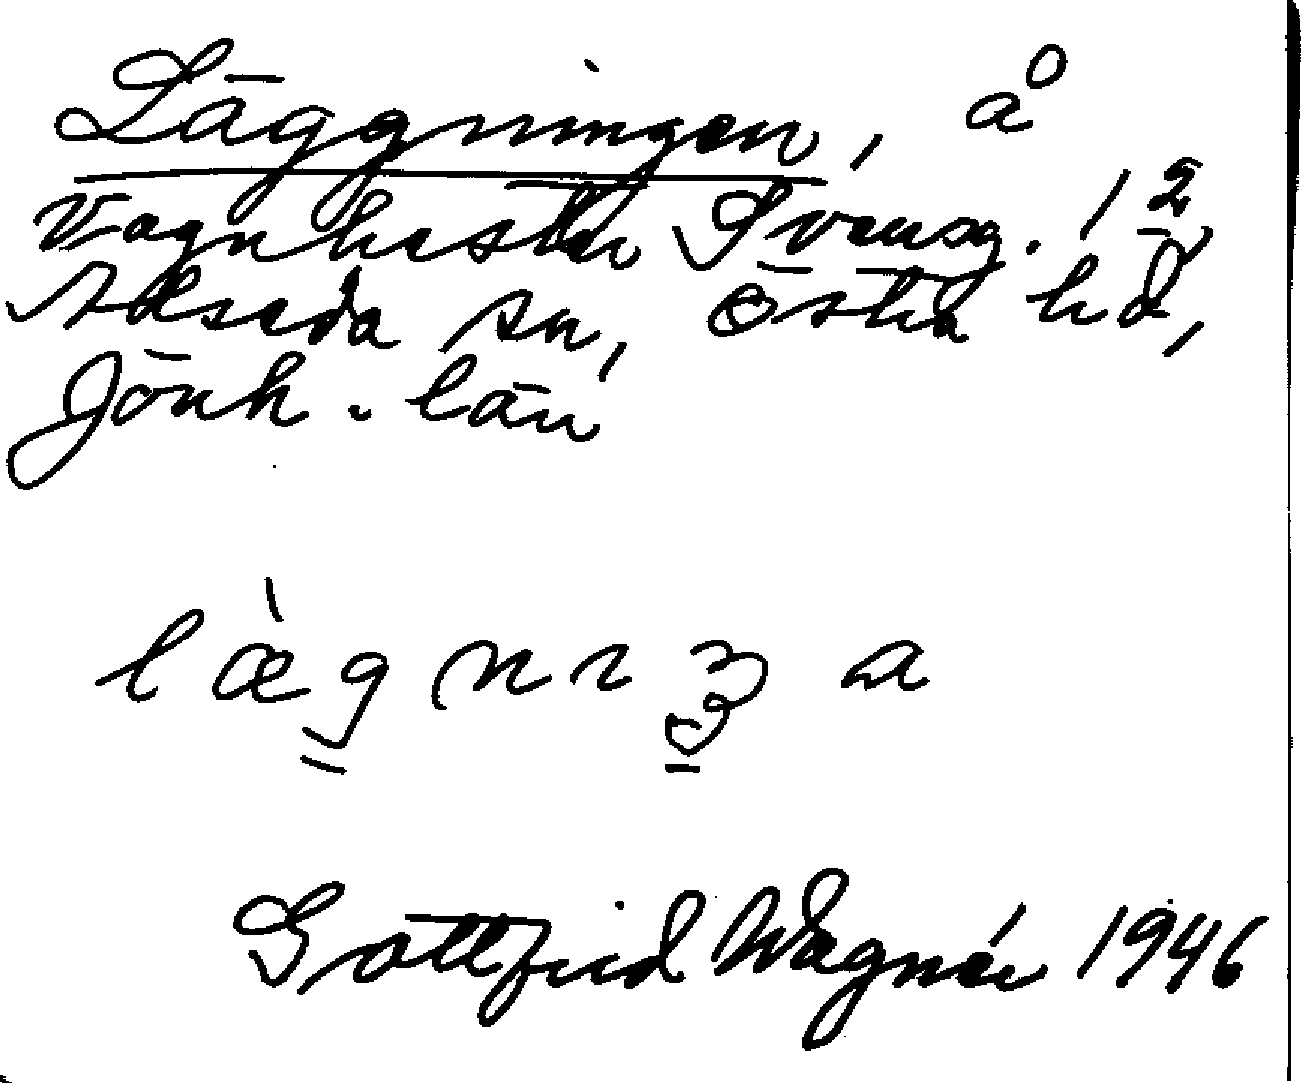 Läggningen, å
Vagnhester Svensg. 1 2/2,
Alseda sn, Östra hd,
Jönk. län
Gottfrid Wagnér 1946